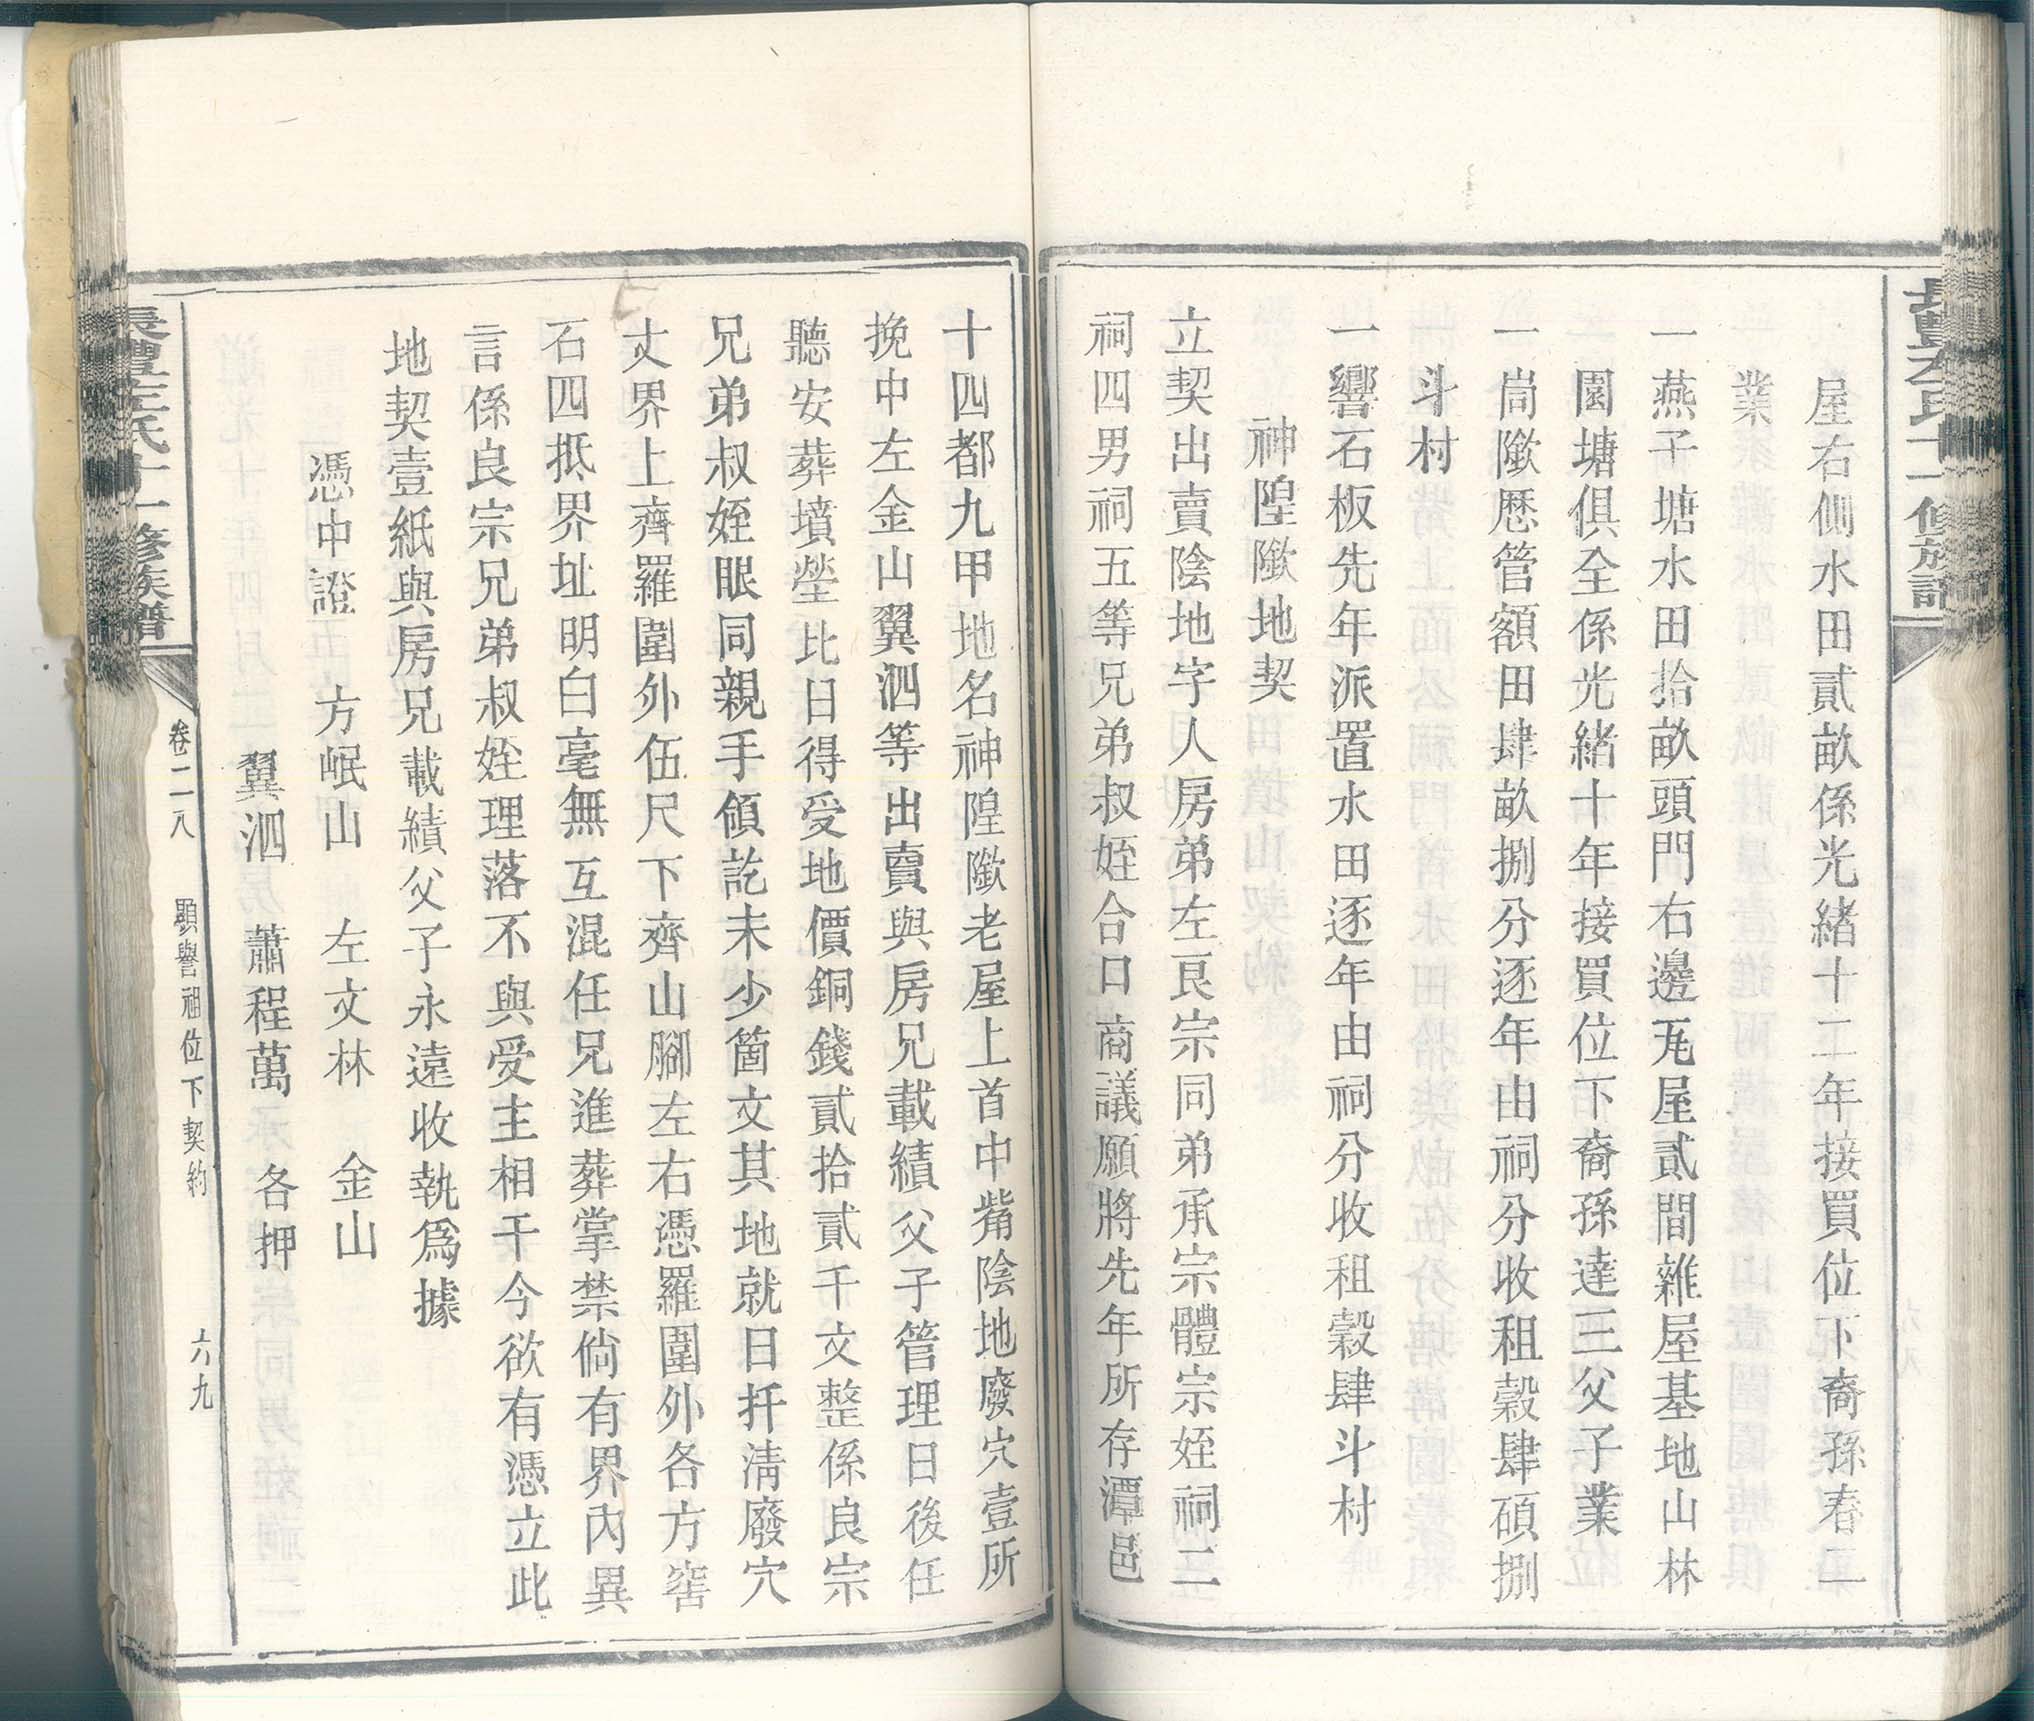 屋右側水田貳畝係光緒十二年接買位下裔孫春二
業
一燕子塘水田拾畝頭門右邊旡屋貳間雜屋基地山林
園塘俱全係光緒十年接買位下裔孫達三父子業
一崗歷管額田肆畝捌分逐年由祠分收租穀肆碩捌
斗村
一響石板先年派置水田逐年由祠分收租穀肆斗村
神隍地契
立契出賣陰地字人房弟左良宗同弟承宗體宗姪祠二
祠四男祠五等兄弟叔姪合口商議願將先年所存潭邑
十四都九甲地名神隍老屋上首中觜陰地廢穴壹所
挽中左金山翼泗等出賣與房兄載績父子管理日後任
聽安葬墳塋比日得受地價銅錢貳拾貳千文整係良宗
兄弟叔姪眼同親手領訖未少箇文其地就日扦清廢穴
丈界上齊羅圍外伍尺下齊山腳左右憑羅圍外各方窖
石四抵界址明白毫無互混任兄進葬掌禁倘有界內異
言係良宗兄弟叔姪理落不與受主相干今欲有憑立此
地契壹紙與房兄載績父子永遠收執爲據
憑中證 方岷山 左文林 金山
翼泗 蕭程萬 各押
左氏十一修族譜
卷二八 顯譽祖位下契約 六九